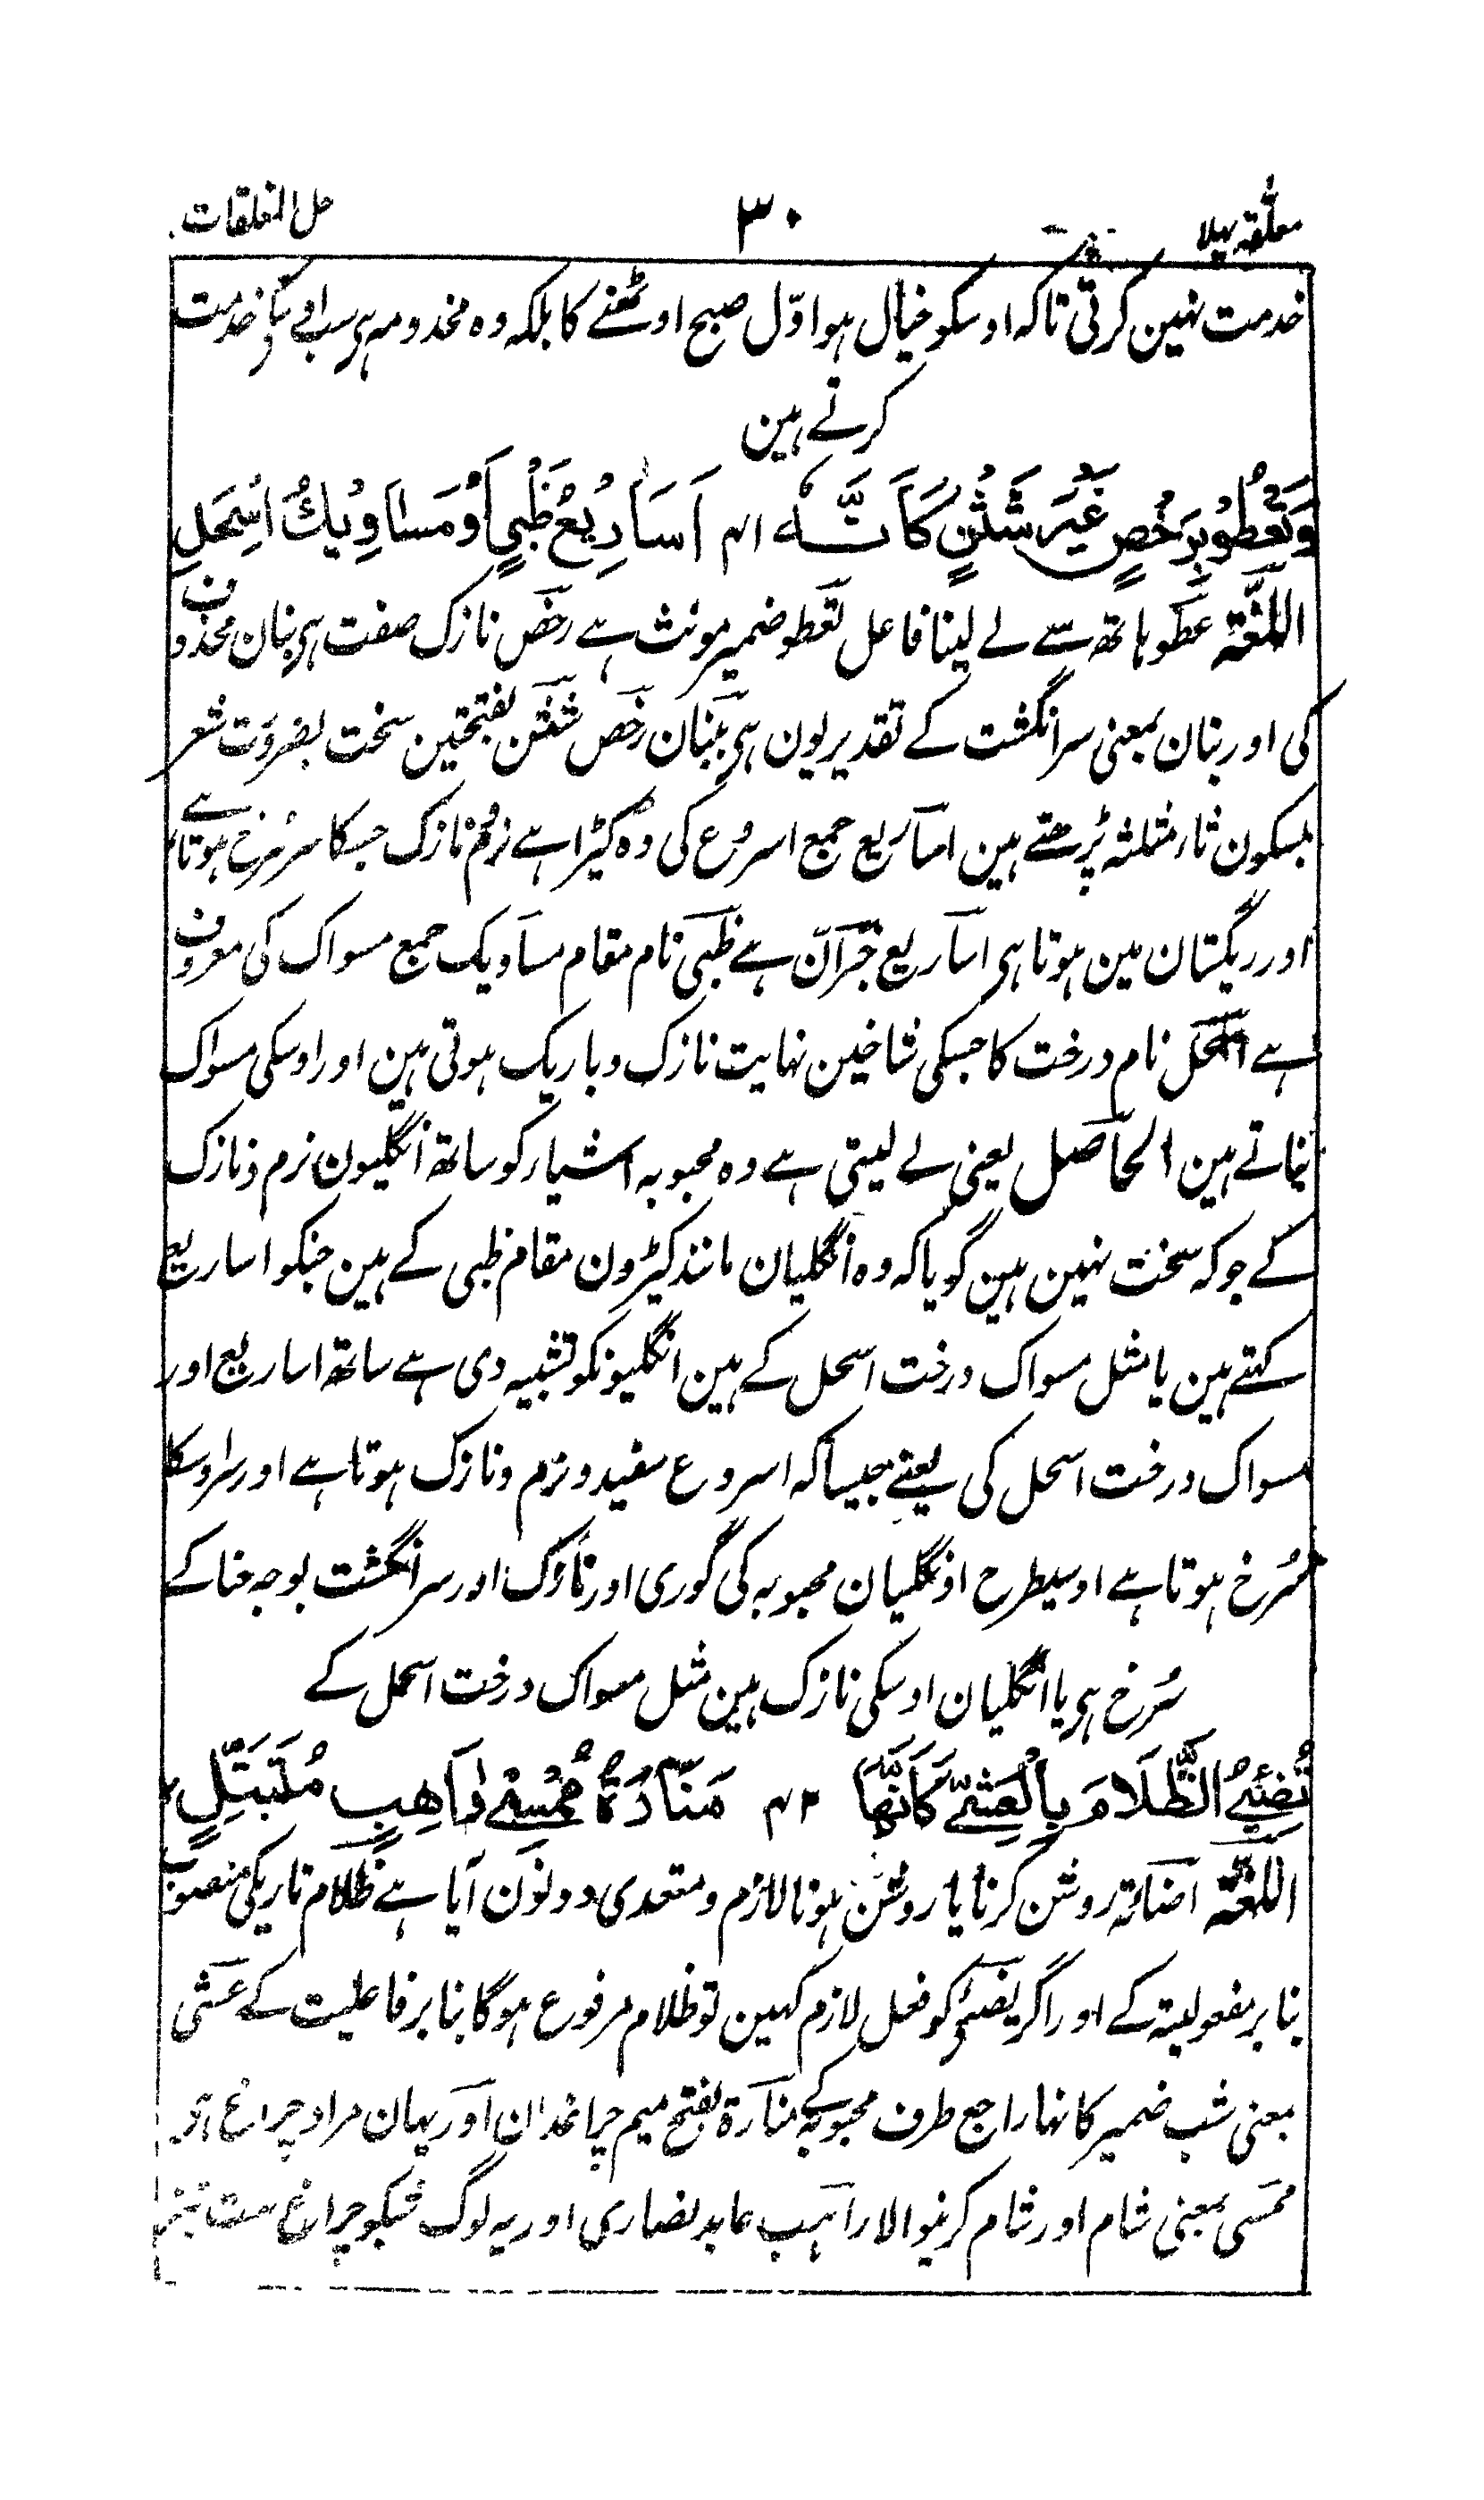 معلقہ پہلا ۳۰ حل المعلقات
خدمت نہین کرتی تاکہ اوسکو خیال ہو اوّل صبح اوٹھنے کا بلکہ وہ مخدومہ ہی سب اوسکی خدمت
کرتے ہین
وَتَعْطُوْ بِرَخْصٍ غَيْرِ شَثْنٍ كَاَنَّهٗ ۴۱ اَسَارِيْعُ ظَبْيٍ اَوْ مَسَاوِيْكُ اِسْحَلِ
اللغة عطو ہاتھ سے لے لینا فاعل تعطو ضمیر مونث ہے رخص نازک صفت ہی بنان محذوف
کی اور بنان بمعنی سر انگشت کے تقدیر یون ہی ببنان رخص شثن بفتحتین سخت بضرورت شعر
بسکون ثار مثلثہ پڑھتے ہین اساریع جمع اسروع کی وہ کیڑا ہے نرم نازک جسکا سر سُرخ ہوتا ہے
اور ریگستان مین ہوتا ہی اساریع خبر انّ ہے ظبی نام مقام مساویک جمع مسواک کی معروف
ہے اسحل نام درخت کا جسکی شاخین نہایت نازک و باریک ہوتی ہین اور اوسکی مسواک
بناتے ہین الحاصل یعنی لے لیتی ہے وہ محبوبہ اشیار کو ساتھ انگلیون نرم و نازک
کے جو کہ سخت نہین ہین گویا کہ وہ انگلیان مانند کیڑون مقام ظبی کے ہین جنکو اساریع
کہتے ہین یا مثل مسواک درخت اسحل کے ہین انگلیونکو تشبیہ دی ہے ساتھ اساریع اور
مسواک درخت اسحل کی یعنے جیسا کہ اسروع سفید و نرم و نازک ہوتا ہے اور سر اوسکا
سُرخ ہوتا ہے اوسیطرح اونگلیان محبوبہ کی گوری اور نازک اور سر انگشت بوجہ حنا کے
سُرخ ہی یا انگلیان اوسکی نازک ہین مثل مسواک درخت اسحل کے
تُضِيْءُ الظَّلَامَ بِالْعَشِيِّ كَاَنَّهَا ۴۲ مَنَارَةُ مُمْسٰى رَاهِبٍ مُتَبَتِّلِ
اللغة اضاءة روشن کرنا یا روشن ہونا لازم و متعدی دونون آیا ہے ظلام تاریکی منصوب
بنا بر مفعولیتہ کے اور اگر یضئ کو فعل لازم کہین تو ظلام مرفوع ہوگا بنا بر فاعلیت کے عشی
بمعنی شب ضمیر کانہا راجع طرف محبوبہ کے منارة بفتح میم چراغدان اور یہان مراد چراغ
ممسی بمعنی شام اور شام کرنیوالا راہب عابد نصاری اور یہ لوگ شبکو چراغ